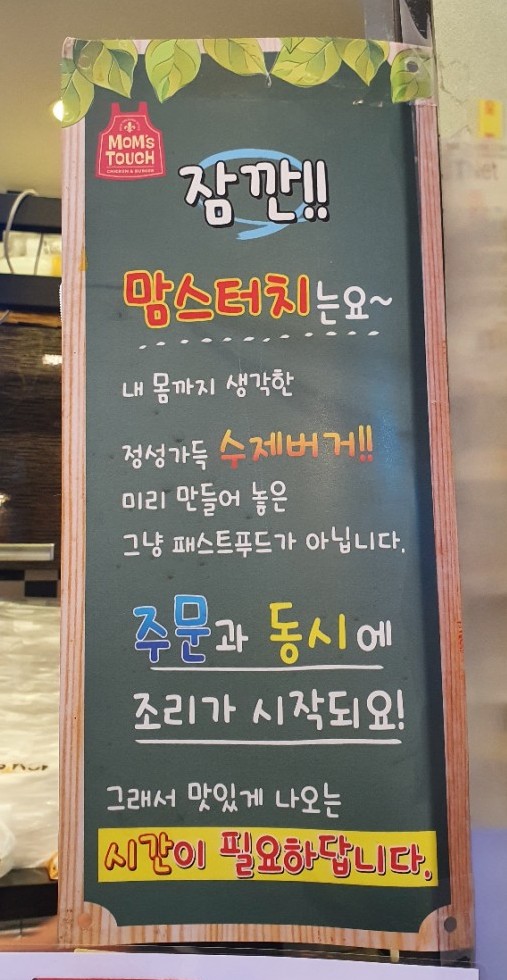 MOM's
TOUCH
CHICKEN & BURGER
잠깐!!
맘스터치는요~
내 몸까지 생각한
정성가득 수제버거!!
미리 만들어 놓은
그냥 패스트푸드가 아닙니다.
주문과 동시에
조리가 시작되요!
그래서 맛있게 나오는
시간이 필요하답니다.